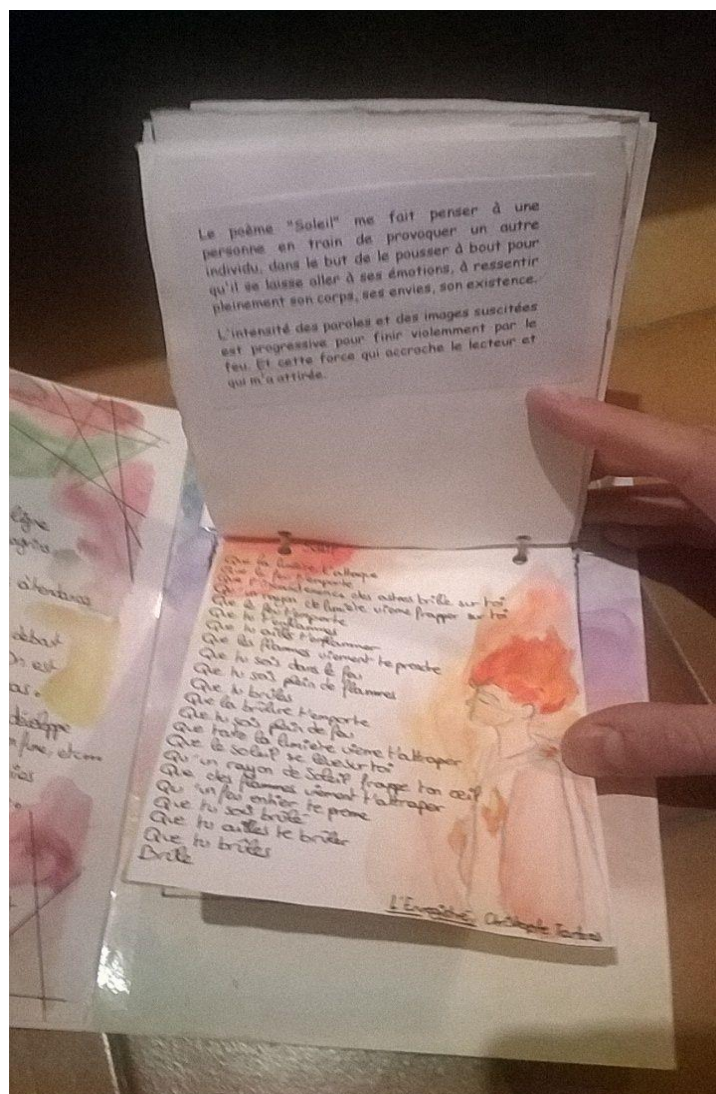 Le poème "Soleil" me fait penser à une
personne en train de provoquer un autre
individu, dans le but de le pousser à bout pour
qu'il se laisse aller à ses émotions, à ressentir
pleinement son corps, ses envies, son existence.
L'intensité des paroles et des images suscitées
est progressive pour finir violemment par le
feu. Et cette force qui accroche le lecteur et
qui m'a attirée.
ligne
débat
est
développe
Que la lumière t'attaque
Que le feu t'emporte
des astres brille sur toi
Qu'un rayon de lumière vienne frapper sur toi
Que le feu t'emporte
Que tu t'enflammes
Que tu ailles t'enflammer
Que les flammes viennent te prendre
Que tu sois dans le feu
Que tu sois plein de flammes
Que tu brûles
Que la brûlure t'emporte
Que tu sois plein de feu
Que toute la lumière vienne t'attraper
Que le soleil se lève sur toi
Qu'un rayon de soleil frappe ton œil
Que des flammes viennent t'attraper
Qu'un feu entier te prenne
Que tu sois brûlé
Que tu ailles te brûler
Que tu brûles
Brûle
L'Enregistré, Christophe Tarkos